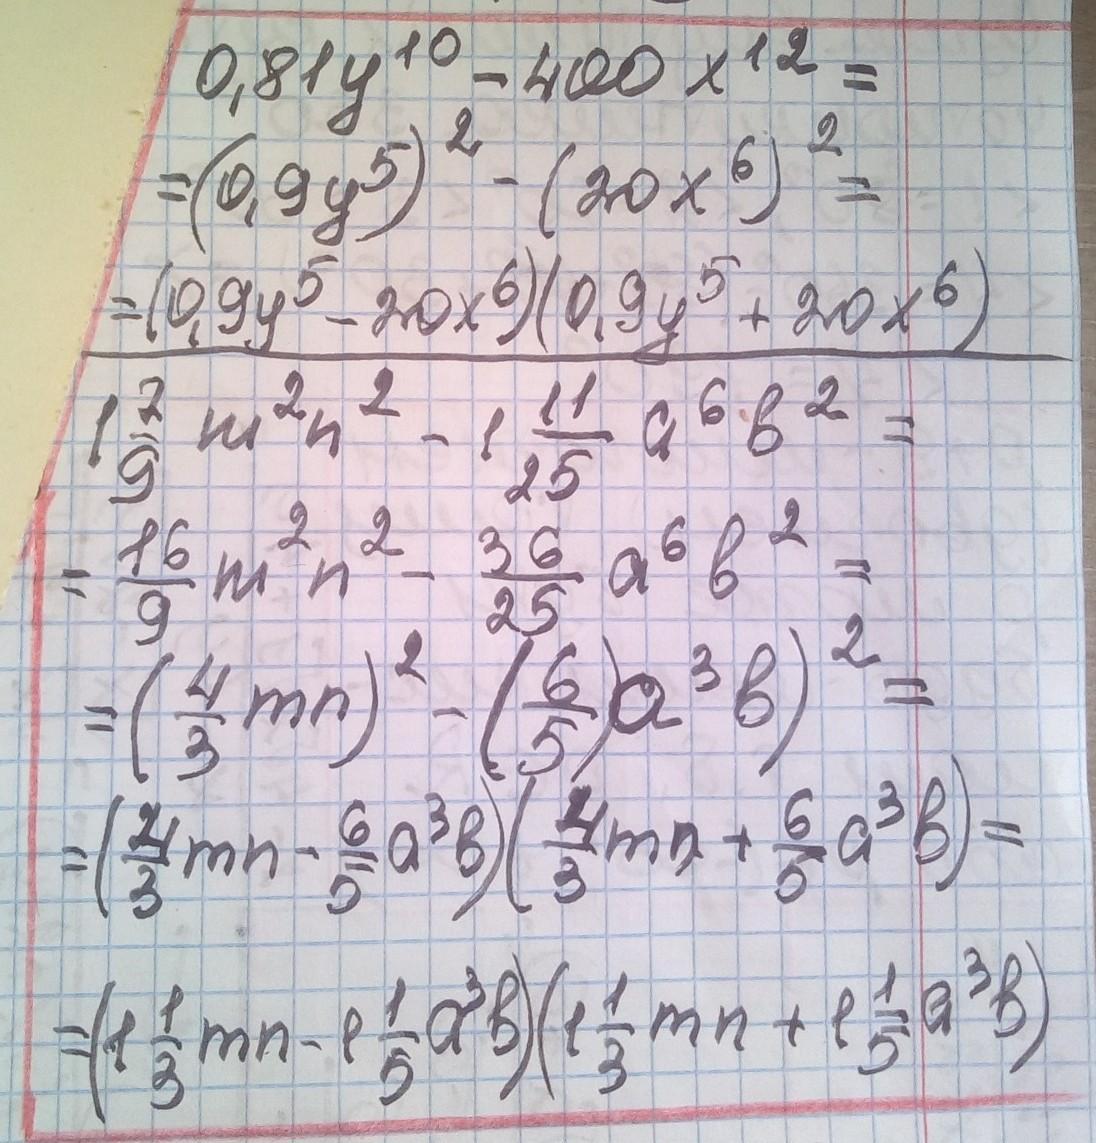 0,81y¹⁰ - 400x¹² =
= (0,9y⁵)² - (20x⁶)² =
= (0,9y⁵ - 20x⁶)(0,9y⁵ + 20x⁶)
1 2/9 m²n² - 1 11/25 a⁶b² =
= 16/9 m²n² - 36/25 a⁶b² =
= (4/3 mn)² - (6/5)a³b)² =
= (4/3 mn - 6/5 a³b)(4/3 mn + 6/5 a³b) =
= (1 1/3 mn - 1 1/5 a³b)(1 1/3 mn + 1 1/5 a³b)